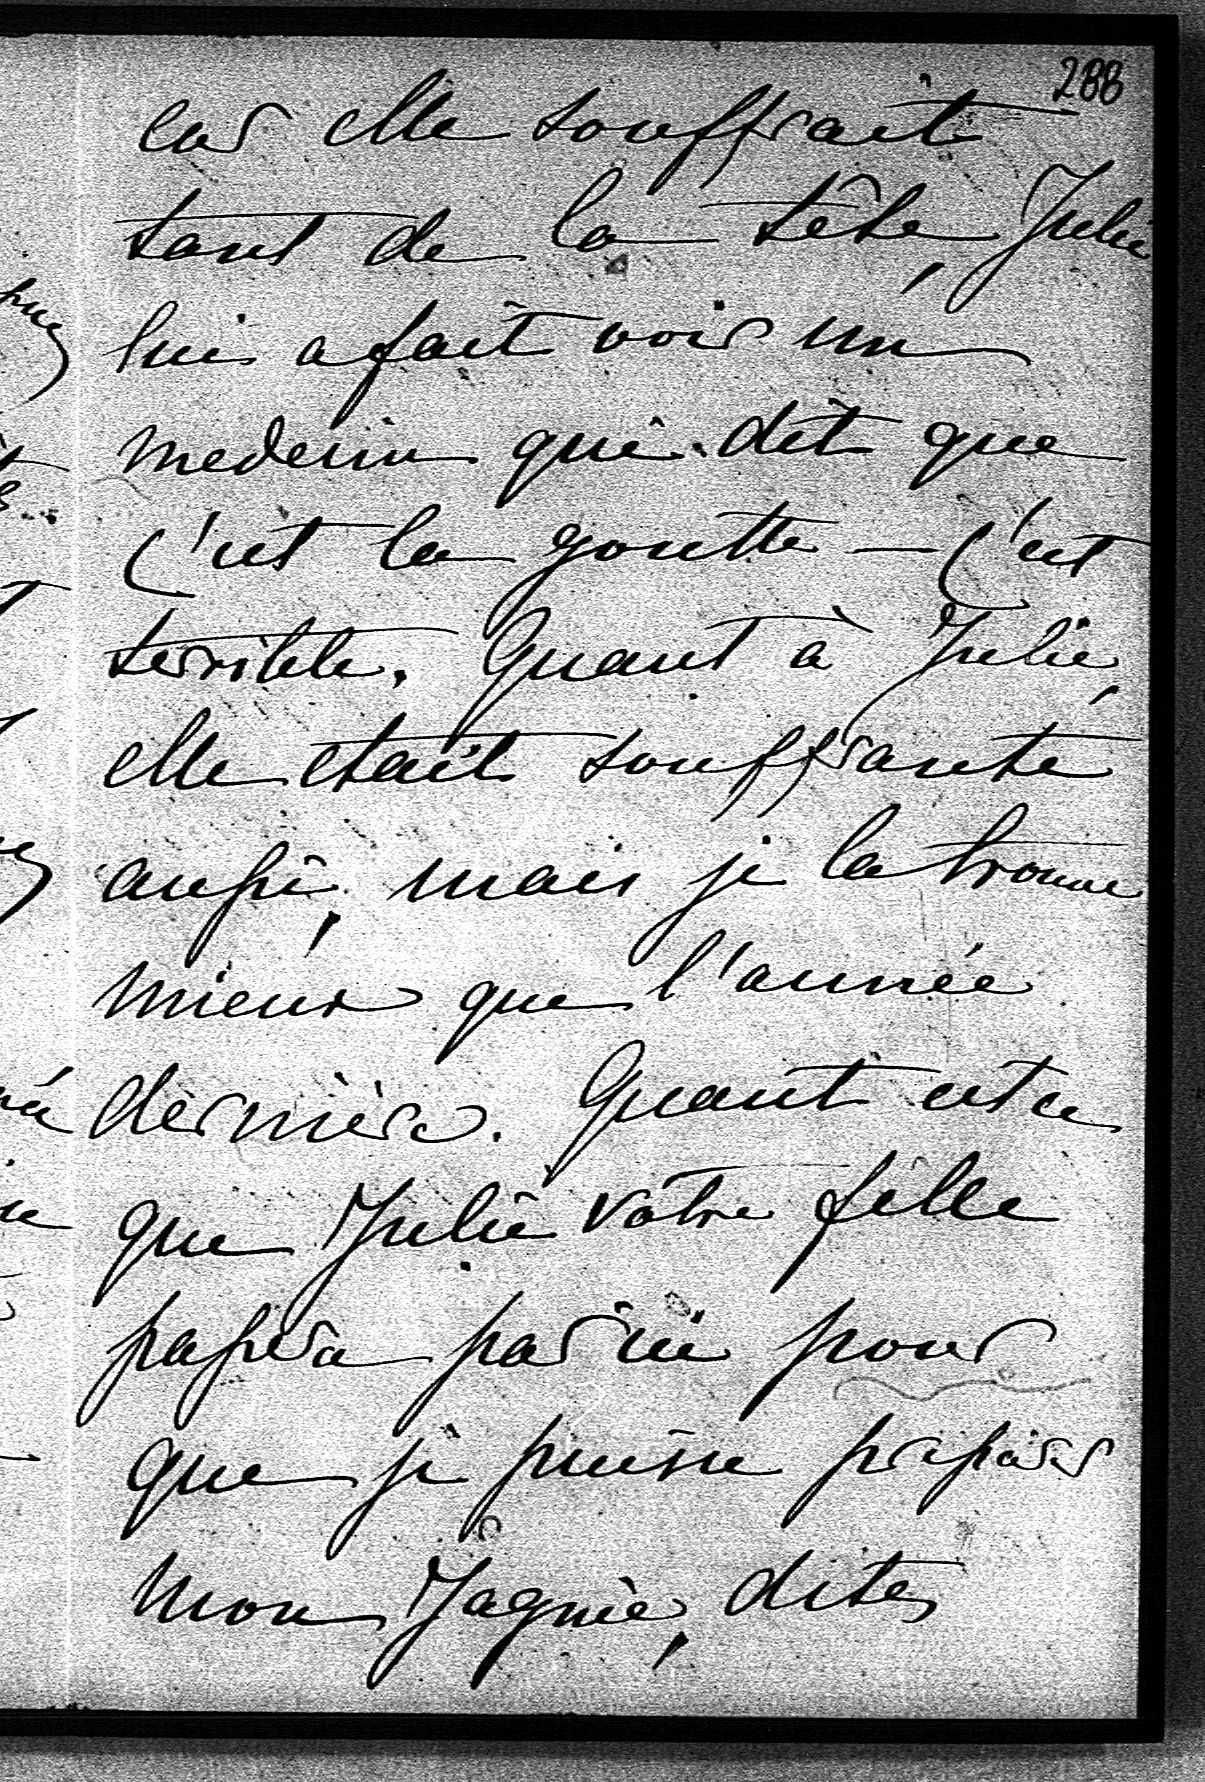 288
car elle souffrait
tant de la tête, Julie
lui a fait voir un
medecin qui dit que
c'est la goutte — c'est
terrible. Quant à Julie,
elle etait souffrante
aussi, mais je la trouve
mieux que l'année
dernière. Quant est ce
que Julie votre fille
passera par ici pour
que je puisse preparer
mon Jagnie, dites